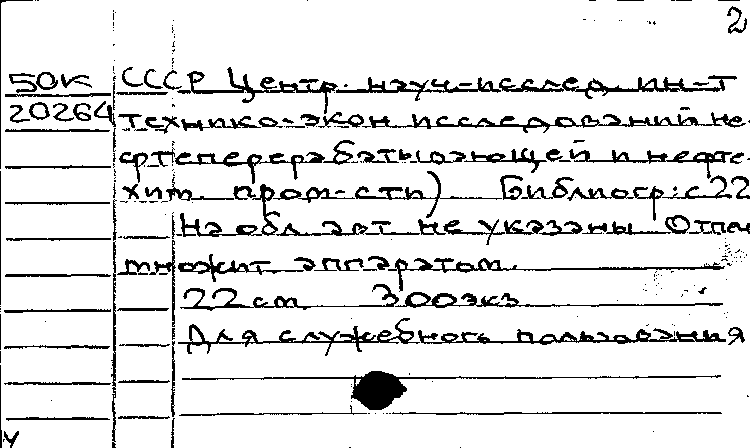 2
50к СССР Центр. науч-исслед. ин-т
20264 технико-экон исследований не-
фтеперерабатывающей и нефте-
хим. пром-сти) Библиогр: с 22
На обл авт не указаны Отпеч
множит. аппаратом.
22 см 300 экз
Для служебного пользования